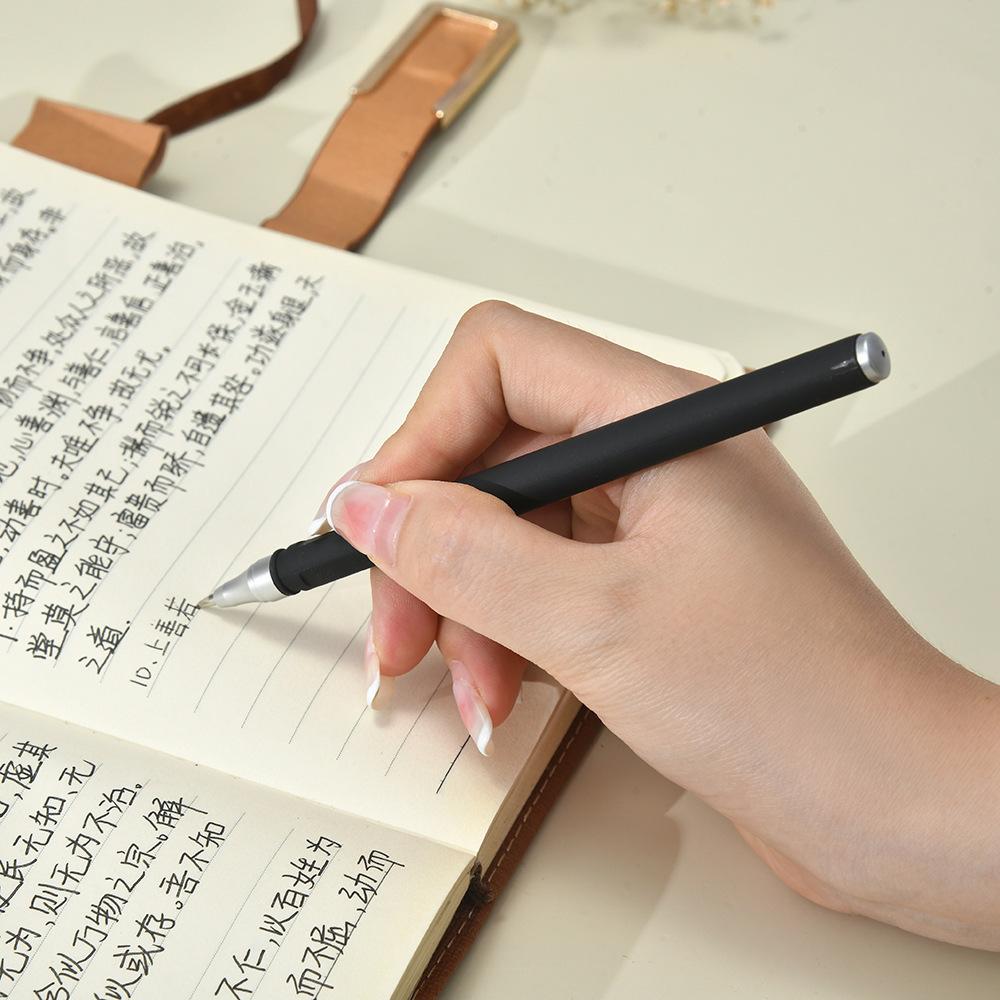 虚其
民无知、无
无为,则无为不治。
似万物之宗。解
似或存。吾不知
不仁,以百姓为
而不屈,动而
故
而身存。非
而不争,处众人之所恶,故
心善洲,与善仁,言善信,正善治,
动善时。夫唯不争,故无尤。
持而盈之不如其己,揣而锐之不可长保,金玉满
堂莫之能守,富贵而骄,自遗其咎。功遂身退,天
之道.
10.上善若